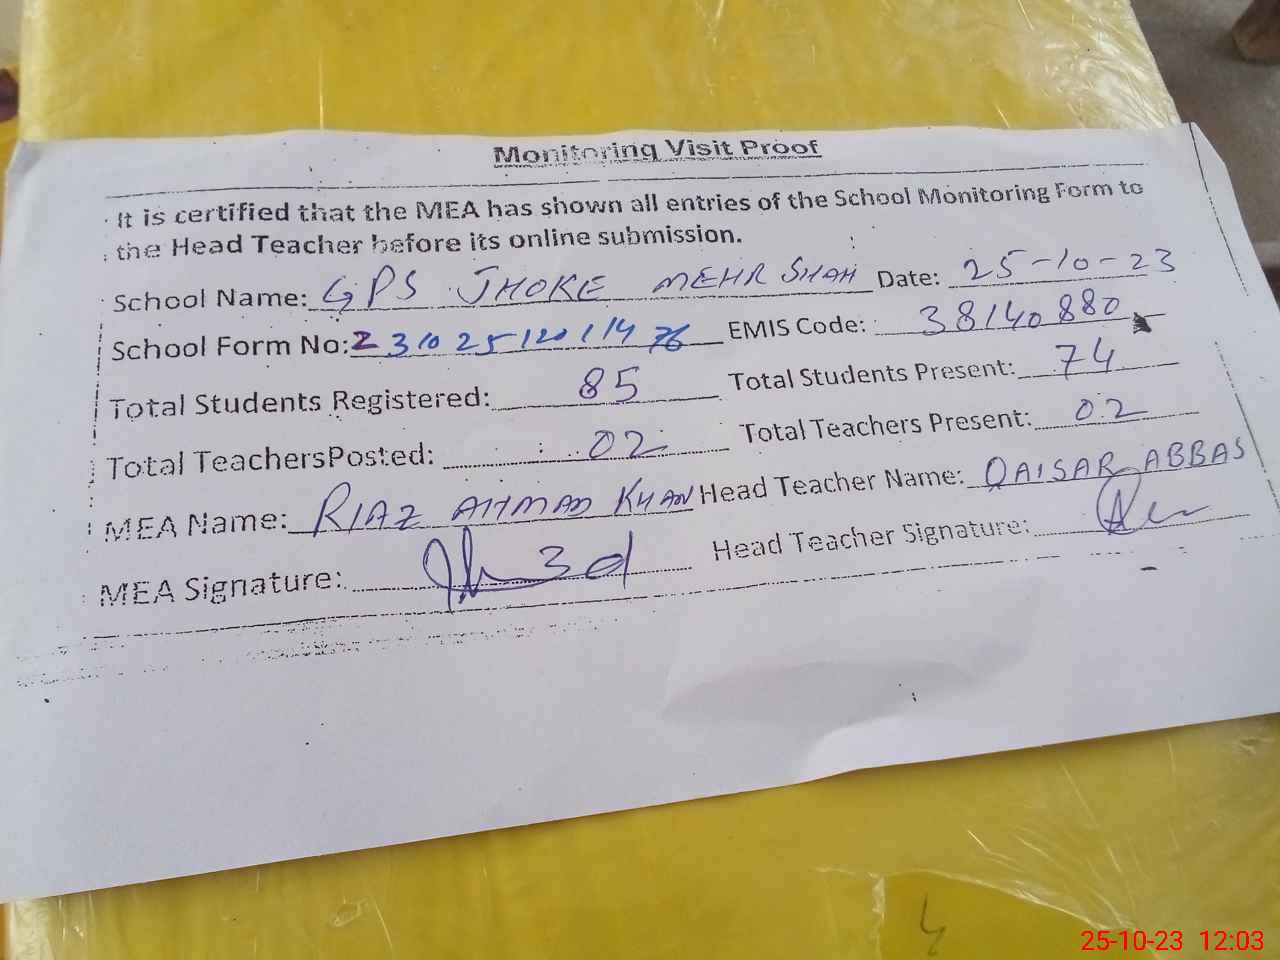 Monitoring Visit Proof
It is certified that the MEA has shown all entries of the School Monitoring Form to
the Head Teacher before its online submission.
School Name: GPS JHOKE MEHR SHAH Date: 25-10-23
School Form No: 231025120111476 EMIS Code: 38140880
Total Students Registered: 85 Total Students Present: 74
Total TeachersPosted: 02 Total Teachers Present: 02
MEA Name: RIAZ AHMAD KHAN Head Teacher Name: QAISAR ABBAS
MEA Signature: Head Teacher Signature:
25-10-23 12:03